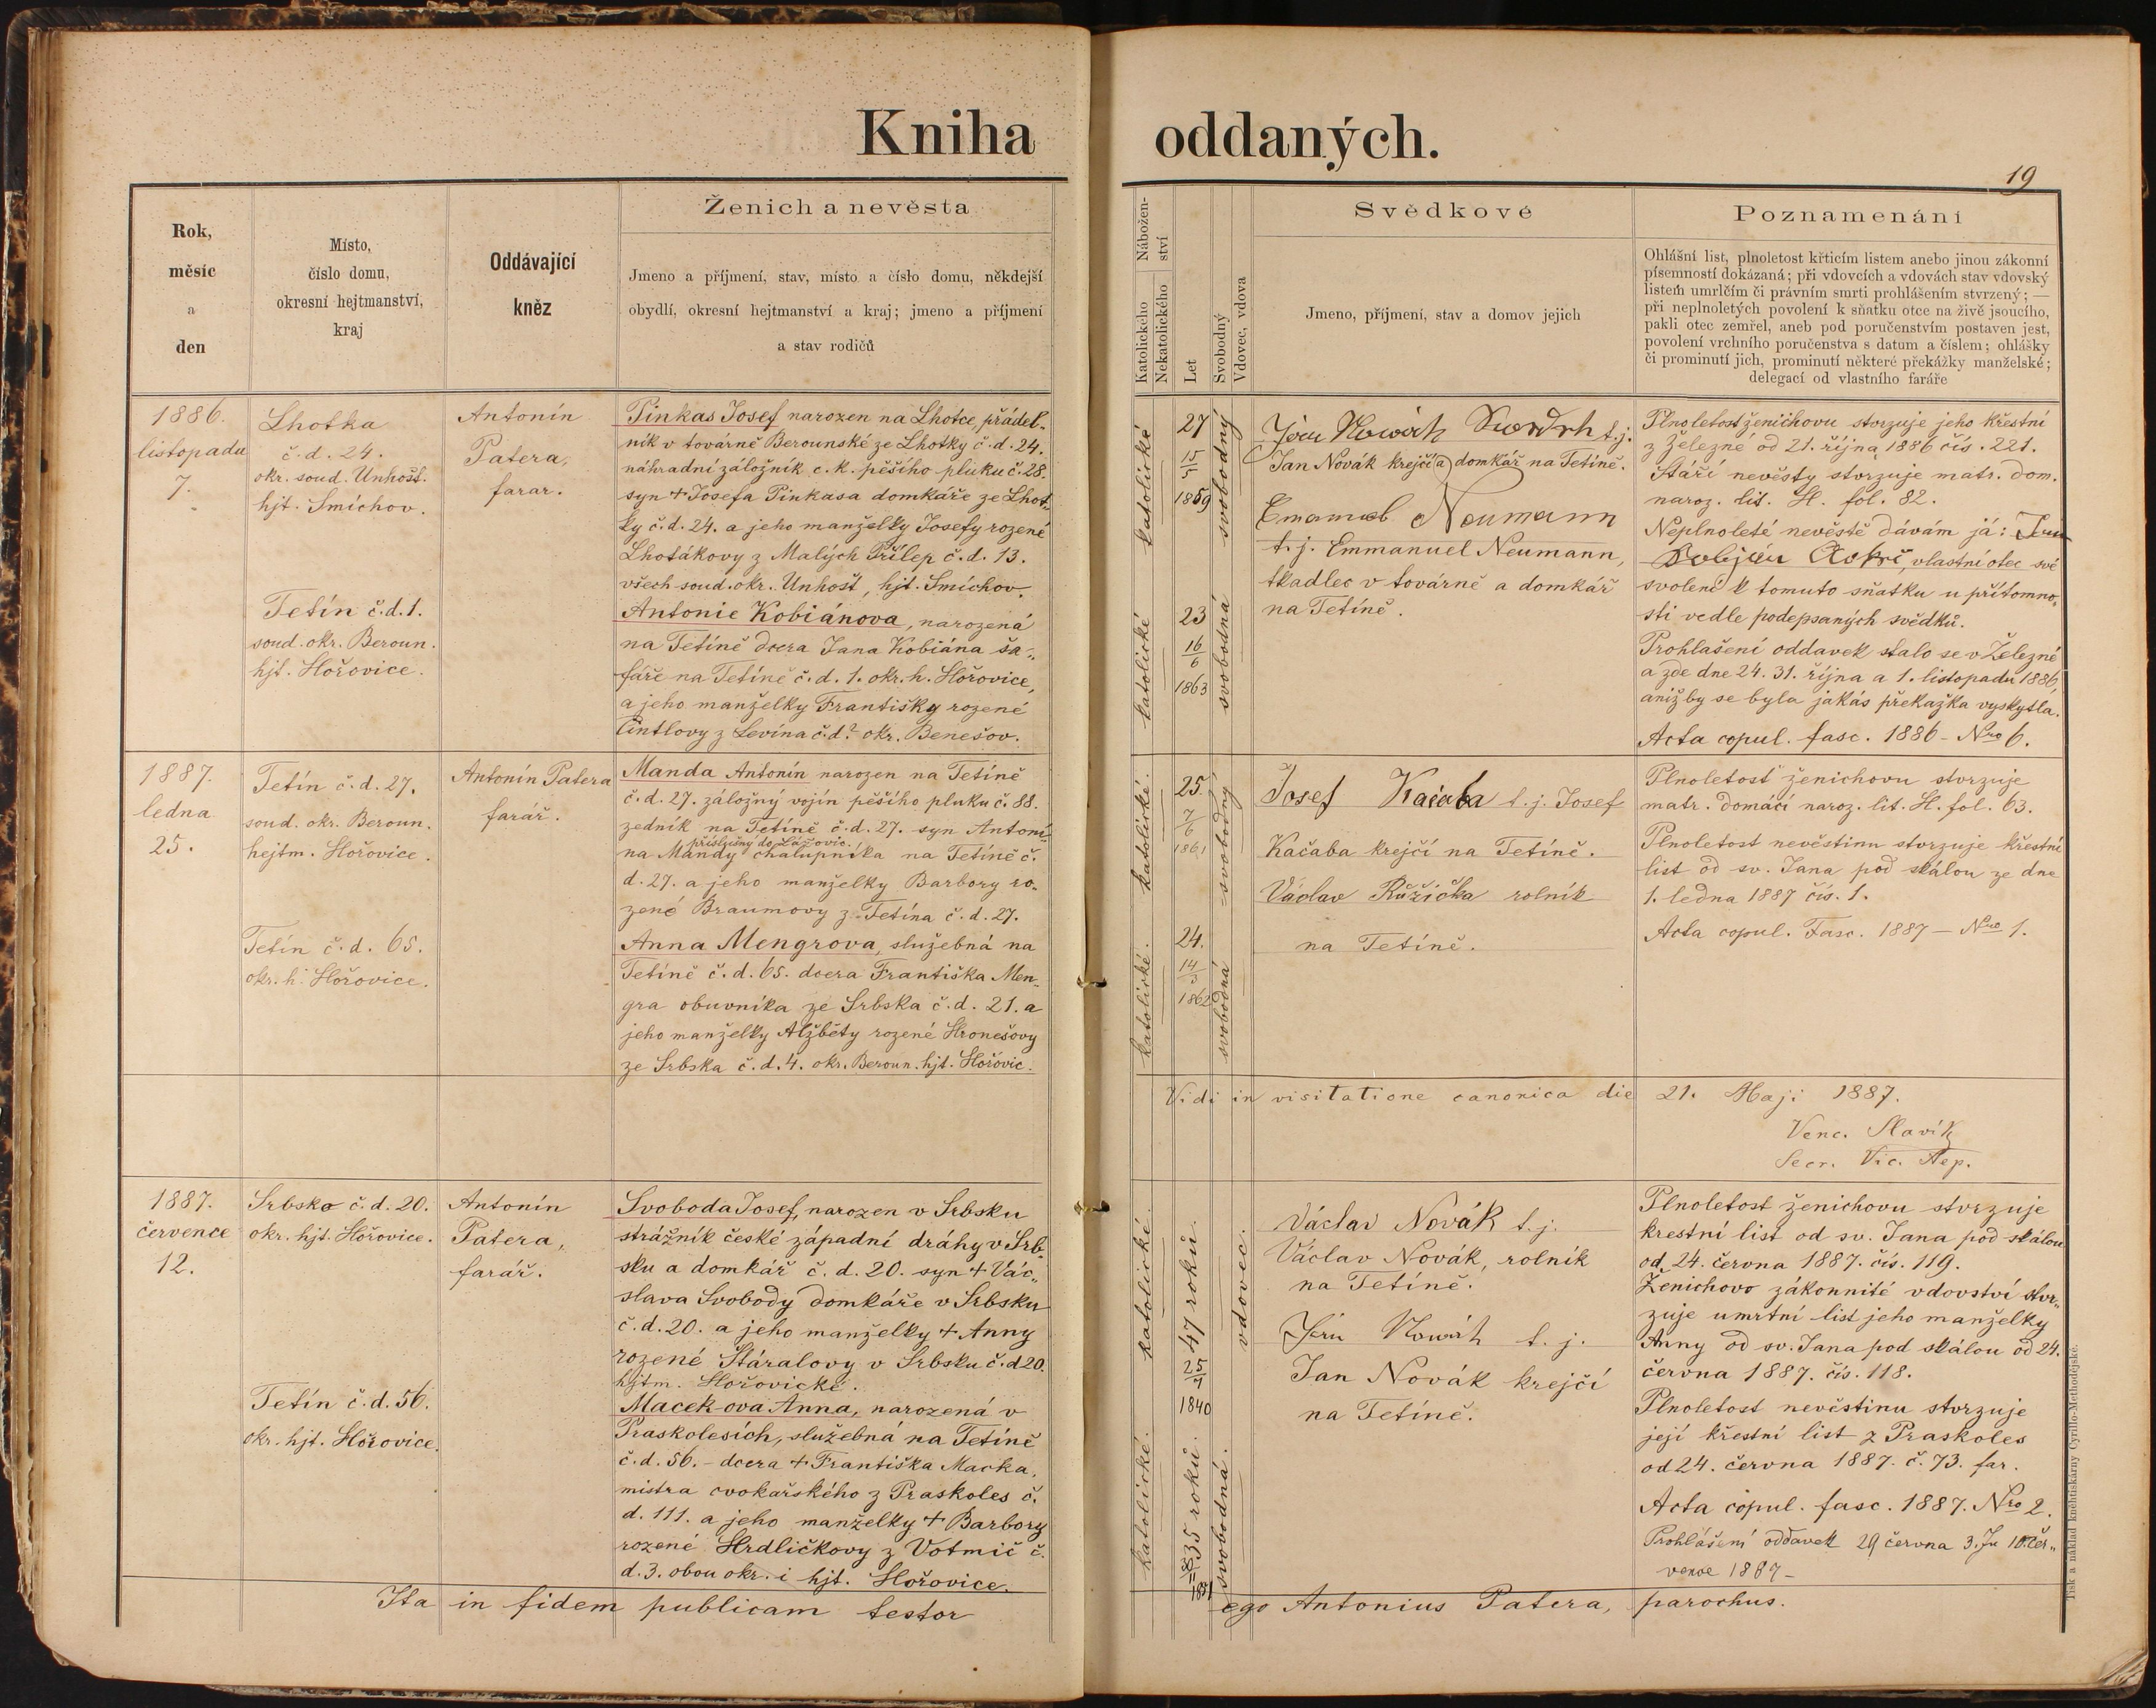 Kniha oddaných.
19
Rok,
měsíc
a
den
Místo,
číslo domu,
okresní hejtmanství,
kraj
Oddávající
kněz
Ženich a nevěsta
Jmeno a příjmení, stav, místo a číslo domu, někdejší
obydlí, okresní hejtmanství a kraj; jmeno a příjmení
a stav rodičů
Nábožen-
ství
Katolického
Nekatolického
Let
Svobodný
Vdovec, vdova
Svědkové
Jmeno, příjmení, stav a domov jejich
Poznamenání
Ohlášní list, plnoletost křticím listem anebo jinou zákonní
písemností dokázaná; při vdovcích a vdovách stav vdovský
listem umrlčím či právním smrti prohlášením stvrzený; —
při neplnoletých povolení k sňatku otce na živě jsoucího,
pakli otec zemřel, aneb pod poručenstvím postaven jest,
povolení vrchního poručenstva s datum a číslem; ohlášky
či prominutí jich, prominutí některé překážky manželské;
delegací od vlastního faráře
1886.
listopadu
7.
Lhotka
č. d. 24.
okr. soud. Unhošť.
hjt. Smíchov.
Tetín č. d. 1.
soud. okr. Beroun.
hjt. Hořovice.
Antonín
Patera,
farar.
Pinkas Josef narozen na Lhotce, přádel-
ník v továrně Berounské ze Lhotky č. d. 24.
náhradní záložník c. k. pěšího pluku č. 28.
syn + Josefa Pinkasa domkáře ze Lhot-
ky č. d. 24. a jeho manželky Josefy rozené
Lhotákovy z Malých Přílep č. d. 13.
všech soud. okr. Unhošť, hjt. Smíchov.
Antonie Kobiánova, narozená
na Tetíně dcera Jana Kobiána ša-
fáře na Tetíně č. d. 1. okr. h. Hořovice,
a jeho manželky Františky rozené
Cintlovy z Levína č. d.? okr. Benešov.
katolické
katolické
27
15/5
1859
23
16/6
1863
svobodný
svobodná
Jan Nowák t. j.
Jan Novák krejčí a domkář na Tetíně.
Emanuel Neumann
t. j. Emmanuel Neumann,
tkadlec v továrně a domkář
na Tetíně.
Plnoletost ženichovu stvrzuje jeho křestní
z Železné od 21. října 1886 čís. 221.
Stáří nevěsty stvrzuje matr. dom.
naroz. lit. H. fol. 82.
Neplnoleté nevěstě dávám já: Jan
vlastní otec své
svolení k tomuto sňatku u přítomno-
sti vedle podepsaných svědků.
Prohlašení oddavek stalo se v Železné
a zde dne 24. 31. října a 1. listopadu 1886,
anižby se byla jakás překažka vyskytla.
Acta copul. fasc. 1886 - Nro 6.
1887.
ledna
25.
Tetín č. d. 27.
soud. okr. Beroun.
hejtm. Hořovice.
Tetín č. d. 65.
okr. h. Hořovice.
Antonín Patera
farář.
Manda Antonín narozen na Tetíně
č. d. 27. záložný vojín pěšího pluku č. 88.
zedník na Tetíně č. d. 27. syn Antoní-
příslušný do Lážovic.
na Mandy chalupníka na Tetíně č.
d. 27. a jeho manželky Barbory ro-
zené Braumovy z Tetína č. d. 27.
Anna Mengrova, služebná na
Tetíně č. d. 65. dcera Františka Men-
gra obuvníka ze Srbska č. d. 21. a
jeho manželky Alžběty rozené Hronešovy
ze Srbska č. d. 4. okr. Beroun. hjt. Hořovic.
katolické.
katolické.
25.
7/6
1861
24.
14/3
1862
svobodný
svobodná
Josef Kačaba t. j. Josef
Kačaba krejčí na Tetíně.
Václav Růžička rolník
na Tetíně.
Plnoletosť ženichovu stvrzuje
matr. domácí naroz. lit. H. fol. 63.
Plnoletost nevěstinu stvrzuje křestní
list od sv. Jana pod skálou ze dne
1. ledna 1887 čís. 1.
Acta copul. Fasc. 1887 - Nro 1.
Vidi in visitatione canonica die 21. Maji 1887.
Venc. Slavík
Secr. Vic. Aep.
1887.
července
12.
Srbsko č. d. 20.
okr. hjt. Hořovice.
Tetín č. d. 56.
okr. hjt. Hořovice.
Antonín
Patera,
farář.
Svoboda Josef, narozen v Srbsku
strážník české západní dráhy v Srb-
sku a domkář č. d. 20. syn + Vác-
slava Svobody domkáře v Srbsku
č. d. 20. a jeho manželky + Anny
rozené Stáralovy v Srbsku č. d 20.
hjtm. Hořovické.
Macek-ova Anna, narozená v
Praskolesích, služebná na Tetíně
č. d. 56. - dcera + Františka Macka,
mistra cvokařského z Praskoles č.
d. 111. a jeho manželky + Barbory
rozené Hrdličkovy z Votmíč č.
d. 3. obou okr. i hjt. Hořovice.
katolické.
katolické.
47 roků.
1840
35 roků.
1851
vdovec.
svobodná.
Václav Novák t. j.
Václav Novák, rolník
na Tetíně.
Jan Nowák t. j.
Jan Novák krejčí
na Tetíně.
Plnoletost ženichovu stvrzuje
krestní list od sv. Jana pod skálou
od 24. června 1887. čís. 119.
Ženichovo zákonnité vdovství stvr-
zuje umrtní list jeho manželky
Anny od sv. Jana pod skálou od 24.
června 1887. čís. 118.
Plnoletost nevěstinu stvrzuje
její křestní list z Praskoles
od 24. června 1887. č. 73. far.
Acta copul. fasc. 1887. Nro 2.
Prohlášení oddavek 29 června 3. 10. čer-
vence 1887 -
Ita in fidem publicam testor ego Antonius Patera, parochus.
Tisk a náklad knihtiskárny Cyrillo-Methodějské.